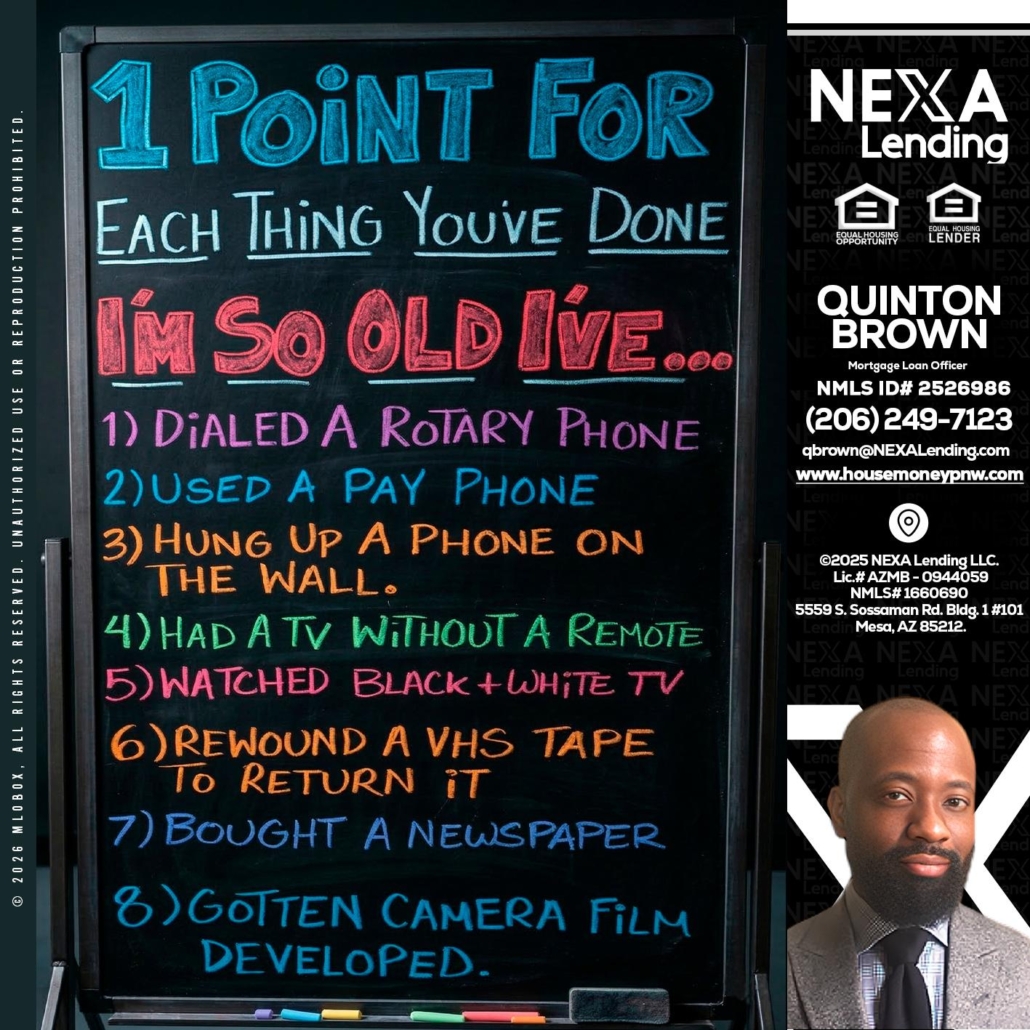 1 POINT FOR
EACH THING YOU'VE DONE
I'M SO OLD I'VE...
1) DIALED A ROTARY PHONE
2) USED A PAY PHONE
3) HUNG UP A PHONE ON
THE WALL.
4) HAD A TV WITHOUT A REMOTE
5) WATCHED BLACK + WHITE TV
6) REWOUND A VHS TAPE
TO RETURN IT
7) BOUGHT A NEWSPAPER
8) GOTTEN CAMERA FILM
DEVELOPED.
© 2026 MLOBOX, ALL RIGHTS RESERVED. UNAUTHORIZED USE OR REPRODUCTION PROHIBITED.
NEXA
Lending
EQUAL HOUSING
OPPORTUNITY
EQUAL HOUSING
LENDER
QUINTON
BROWN
Mortgage Loan Officer
NMLS ID# 2526986
(206) 249-7123
qbrown@NEXALending.com
www.housemoneypnw.com
©2025 NEXA Lending LLC.
Lic.# AZMB - 0944059
NMLS# 1660690
5559 S. Sossaman Rd. Bldg. 1 #101
Mesa, AZ 85212.